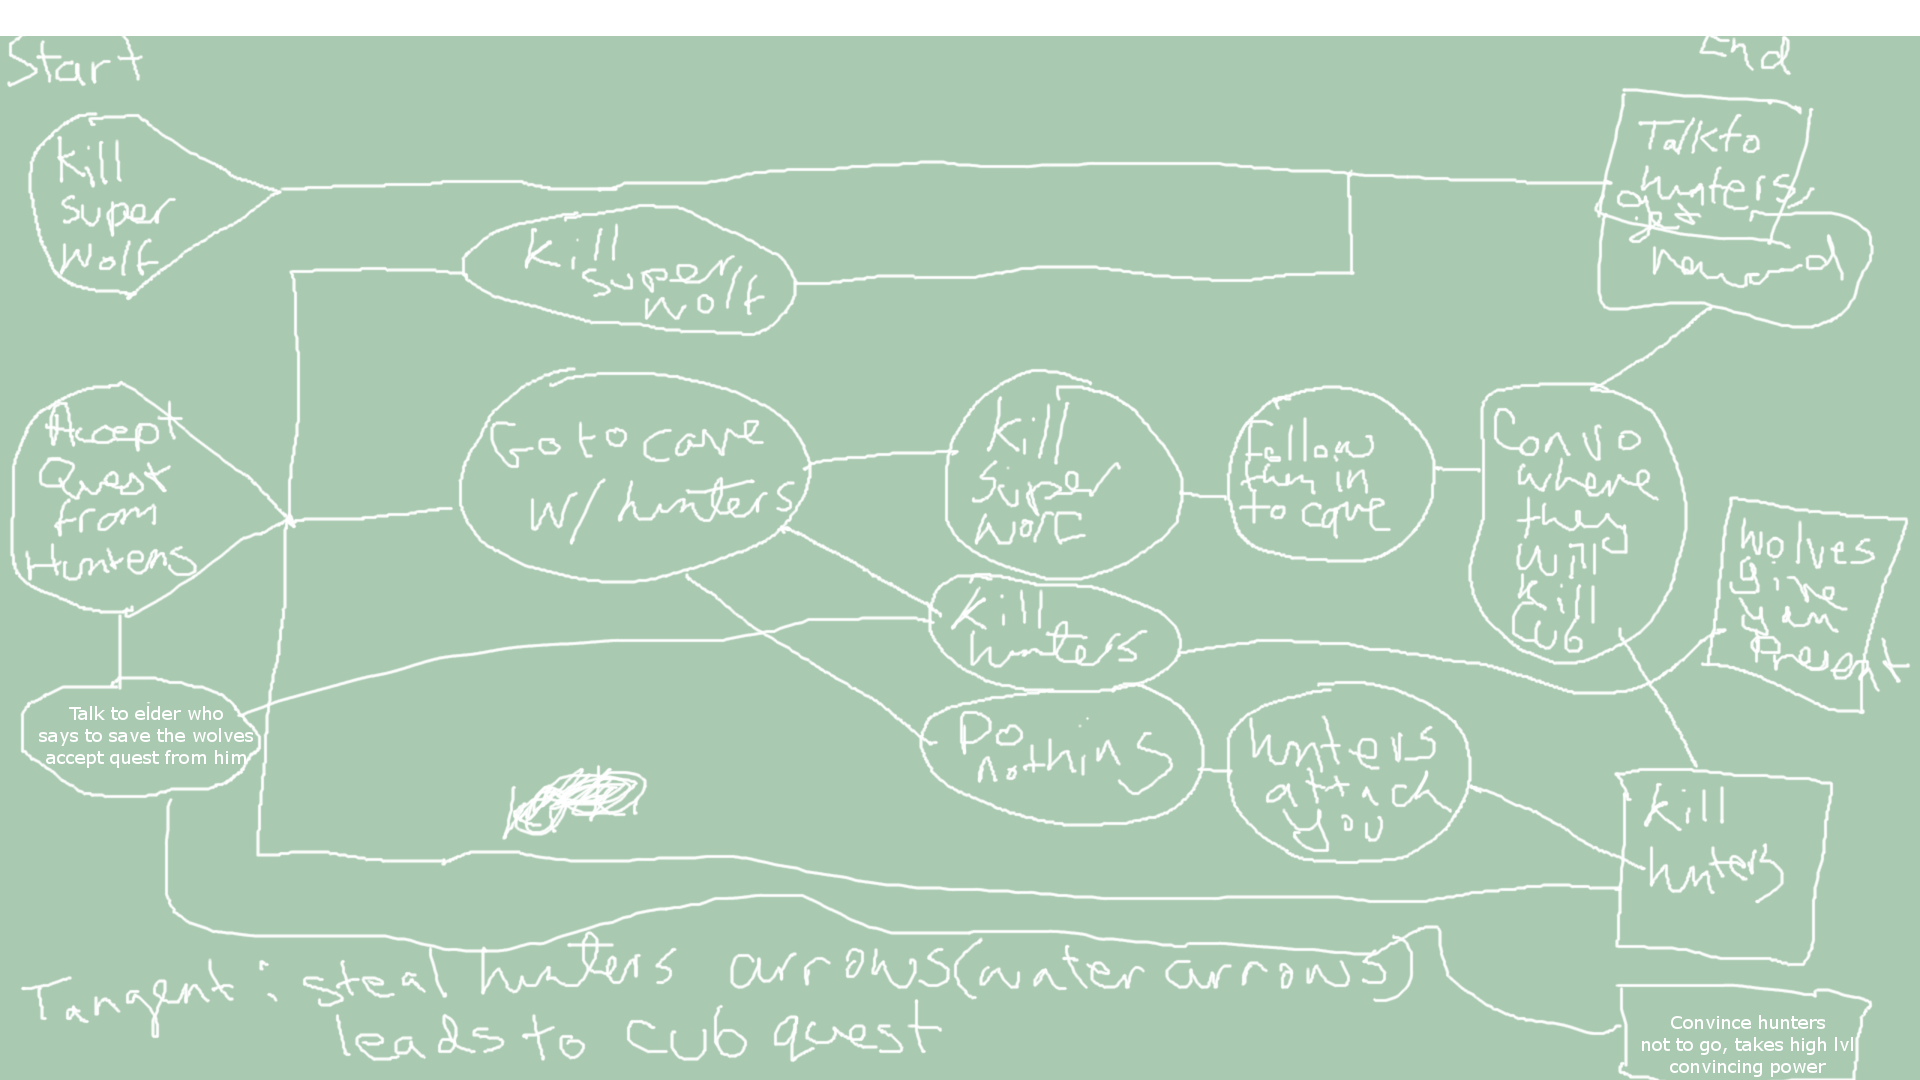 Start
End
Kill
super
Wolf
Talk to
hunters,
get
reward
Kill
super
wolf
Accept
Quest
from
Hunters
Go to cave
W/ hunters
Kill
super
Follow
them in
to cave
Convo
where
they
will
kill
cub
Wolves
give
you
Present
Kill
hunters
Talk to elder who
says to save the wolves
accept quest from him
Do
nothing
hunters
attack
you
Kill
hunters
Tangent: steal hunters arrows (water arrows)
leads to cub quest
Convince hunters
not to go, takes high lvl
convincing power